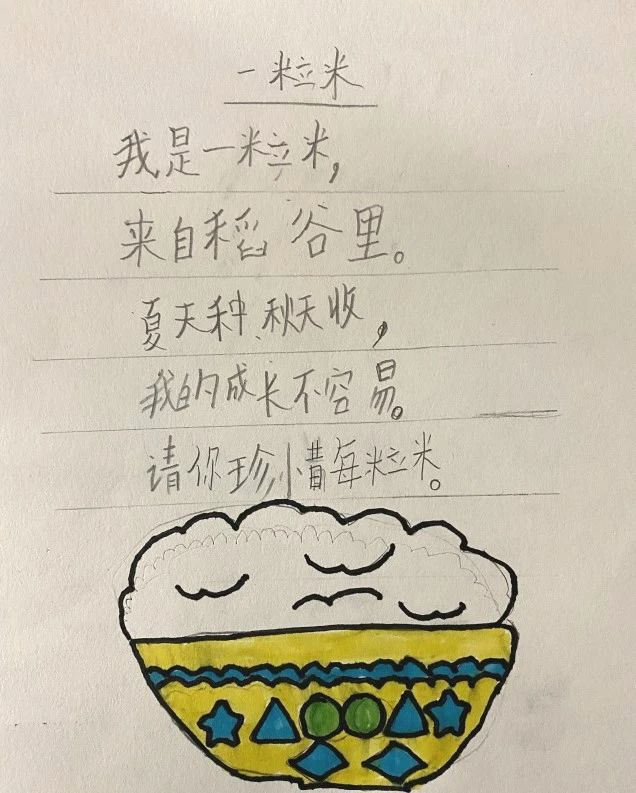 一粒米
我是一粒米，
来自稻谷里。
夏天种，秋天收，
我的成长不容易。
请你珍惜每粒米。